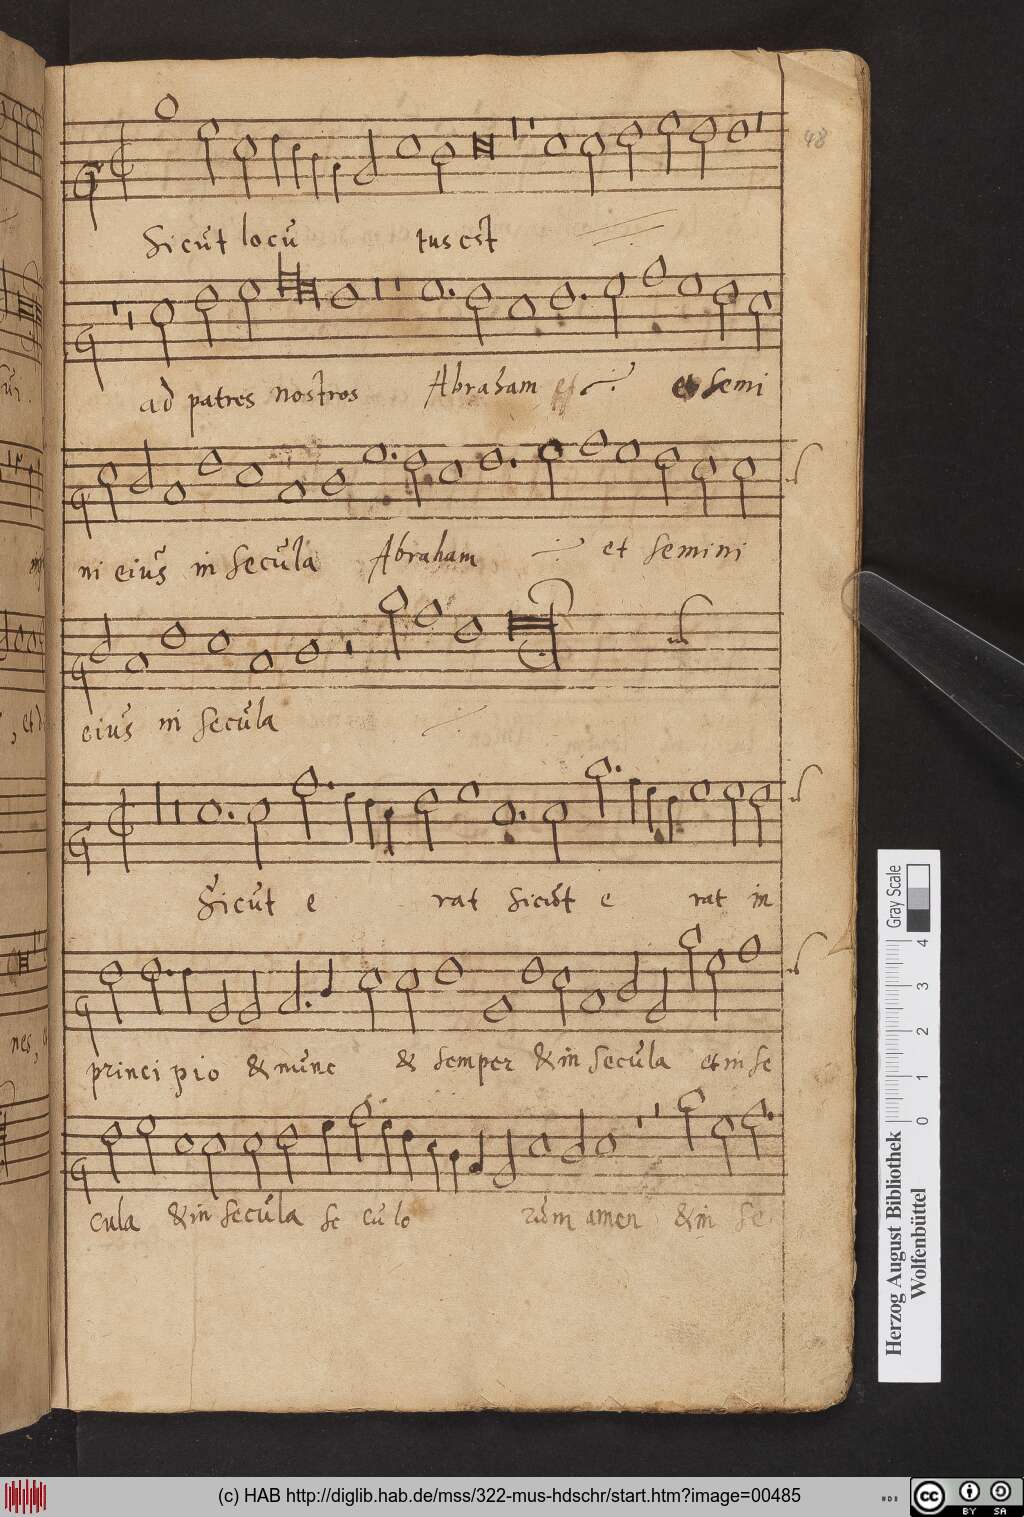 48
Sicut locu tus est
ad patres nostros Abraham et semi
ni eius in Secula Abraham et semini
eius in Secula
Sicut e rat sicut e rat in
princi pio & nunc & semper & in Secula et in se
cula & in secula se cu lo rum amen & in se
Gray Scale
0 1 2 3 4
Herzog August Bibliothek
Wolfenbüttel
(c) HAB http://diglib.hab.de/mss/322-mus-hdschr/start.htm?image=00485
cc BY SA